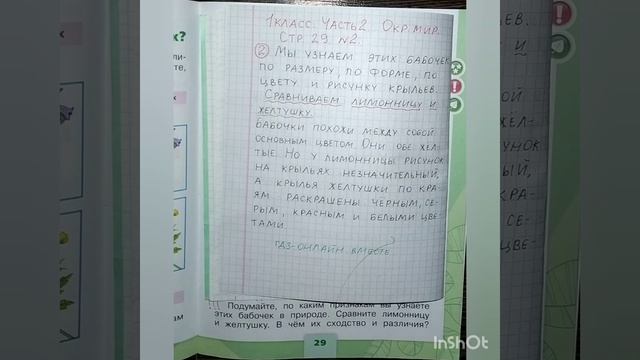 1 КЛАСС. ЧАСТЬ 2 ОКР. МИР.
СТР. 29 №2.
② МЫ УЗНАЕМ ЭТИХ БАБОЧЕК
ПО РАЗМЕРУ, ПО ФОРМЕ, ПО
ЦВЕТУ И РИСУНКУ КРЫЛЬЕВ.
СРАВНИВАЕМ ЛИМОННИЦУ И
ЖЕЛТУШКУ.
БАБОЧКИ ПОХОЖИ МЕЖДУ СОБОЙ
ОСНОВНЫМ ЦВЕТОМ. ОНИ ОБЕ ЖЕЛ-
ТЫЕ. НО У ЛИМОННИЦЫ РИСУНОК
НА КРЫЛЬЯХ НЕЗНАЧИТЕЛЬНЫЙ,
А КРЫЛЬЯ ЖЕЛТУШКИ ПО КРА-
ЯМ РАСКРАШЕНЫ ЧЕРНЫМ, СЕ-
РЫМ, КРАСНЫМ И БЕЛЫМИ ЦВЕ-
ТАМИ.
ГДЗ-ОНЛАЙН ВМЕСТЕ
Подумайте, по каким признакам вы узнаете
этих бабочек в природе. Сравните лимонницу
и желтушку. В чём их сходство и различия?
29
InShOt